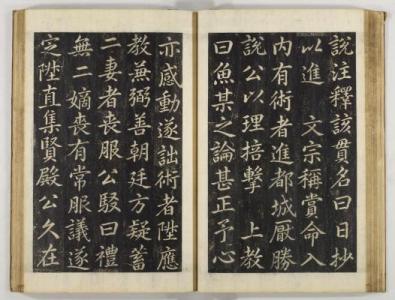 說注釋該貫名曰日抄
以進　文宗稱賞命入
内有術者進都城厭勝
說公以理掊擊　上教
曰魚某之論甚正予心
亦感動遂詘術者陞應
教兼弼善朝廷方疑蓄
二妻者喪服公駁曰禮
無二嫡喪有常服議遂
定陞直集賢殿公久在